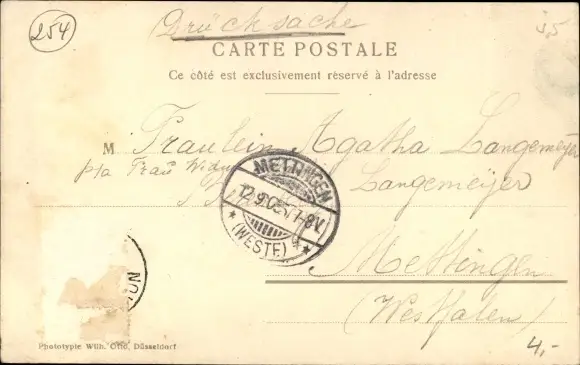 254
Drucksache
5,5
CARTE POSTALE
Ce côté est exclusivement réservé à l'adresse
M Fraulein Agatha Langemeyer
p/a Frau Widwe
Langemeyer
METTINGEN
12.9.05.7-8V.
(WESTF.)
Mettingen
(Westfalen)
4,-
Phototypie Wilh. Otto, Düsseldorf